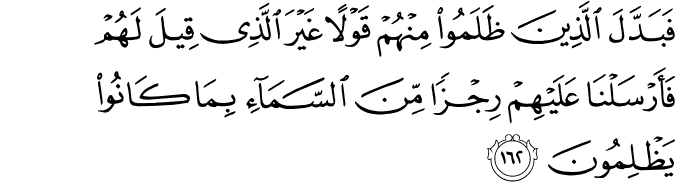 فَبَدَّلَ ٱلَّذِينَ ظَلَمُوا۟ مِنْهُمْ قَوْلًا غَيْرَ ٱلَّذِى قِيلَ لَهُمْ
فَأَرْسَلْنَا عَلَيْهِمْ رِجْزًا مِّنَ ٱلسَّمَآءِ بِمَا كَانُوا۟
يَظْلِمُونَ ١٦٢